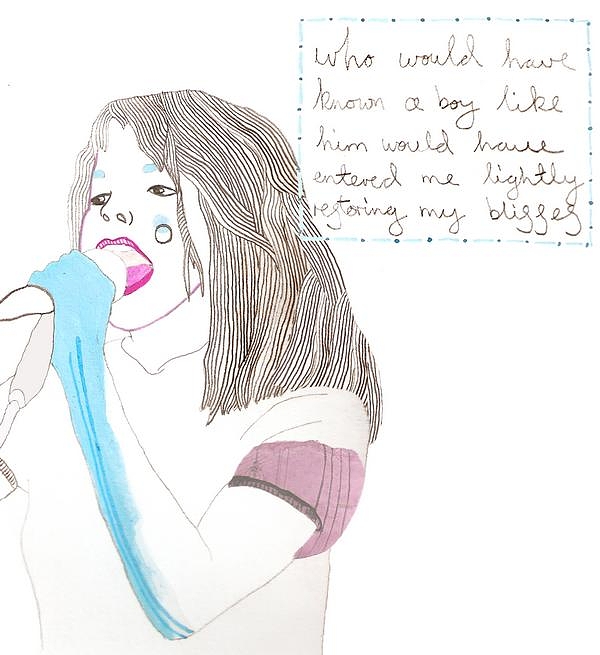 who would have
known a boy like
him would have
entered me lightly
restoring my blisses